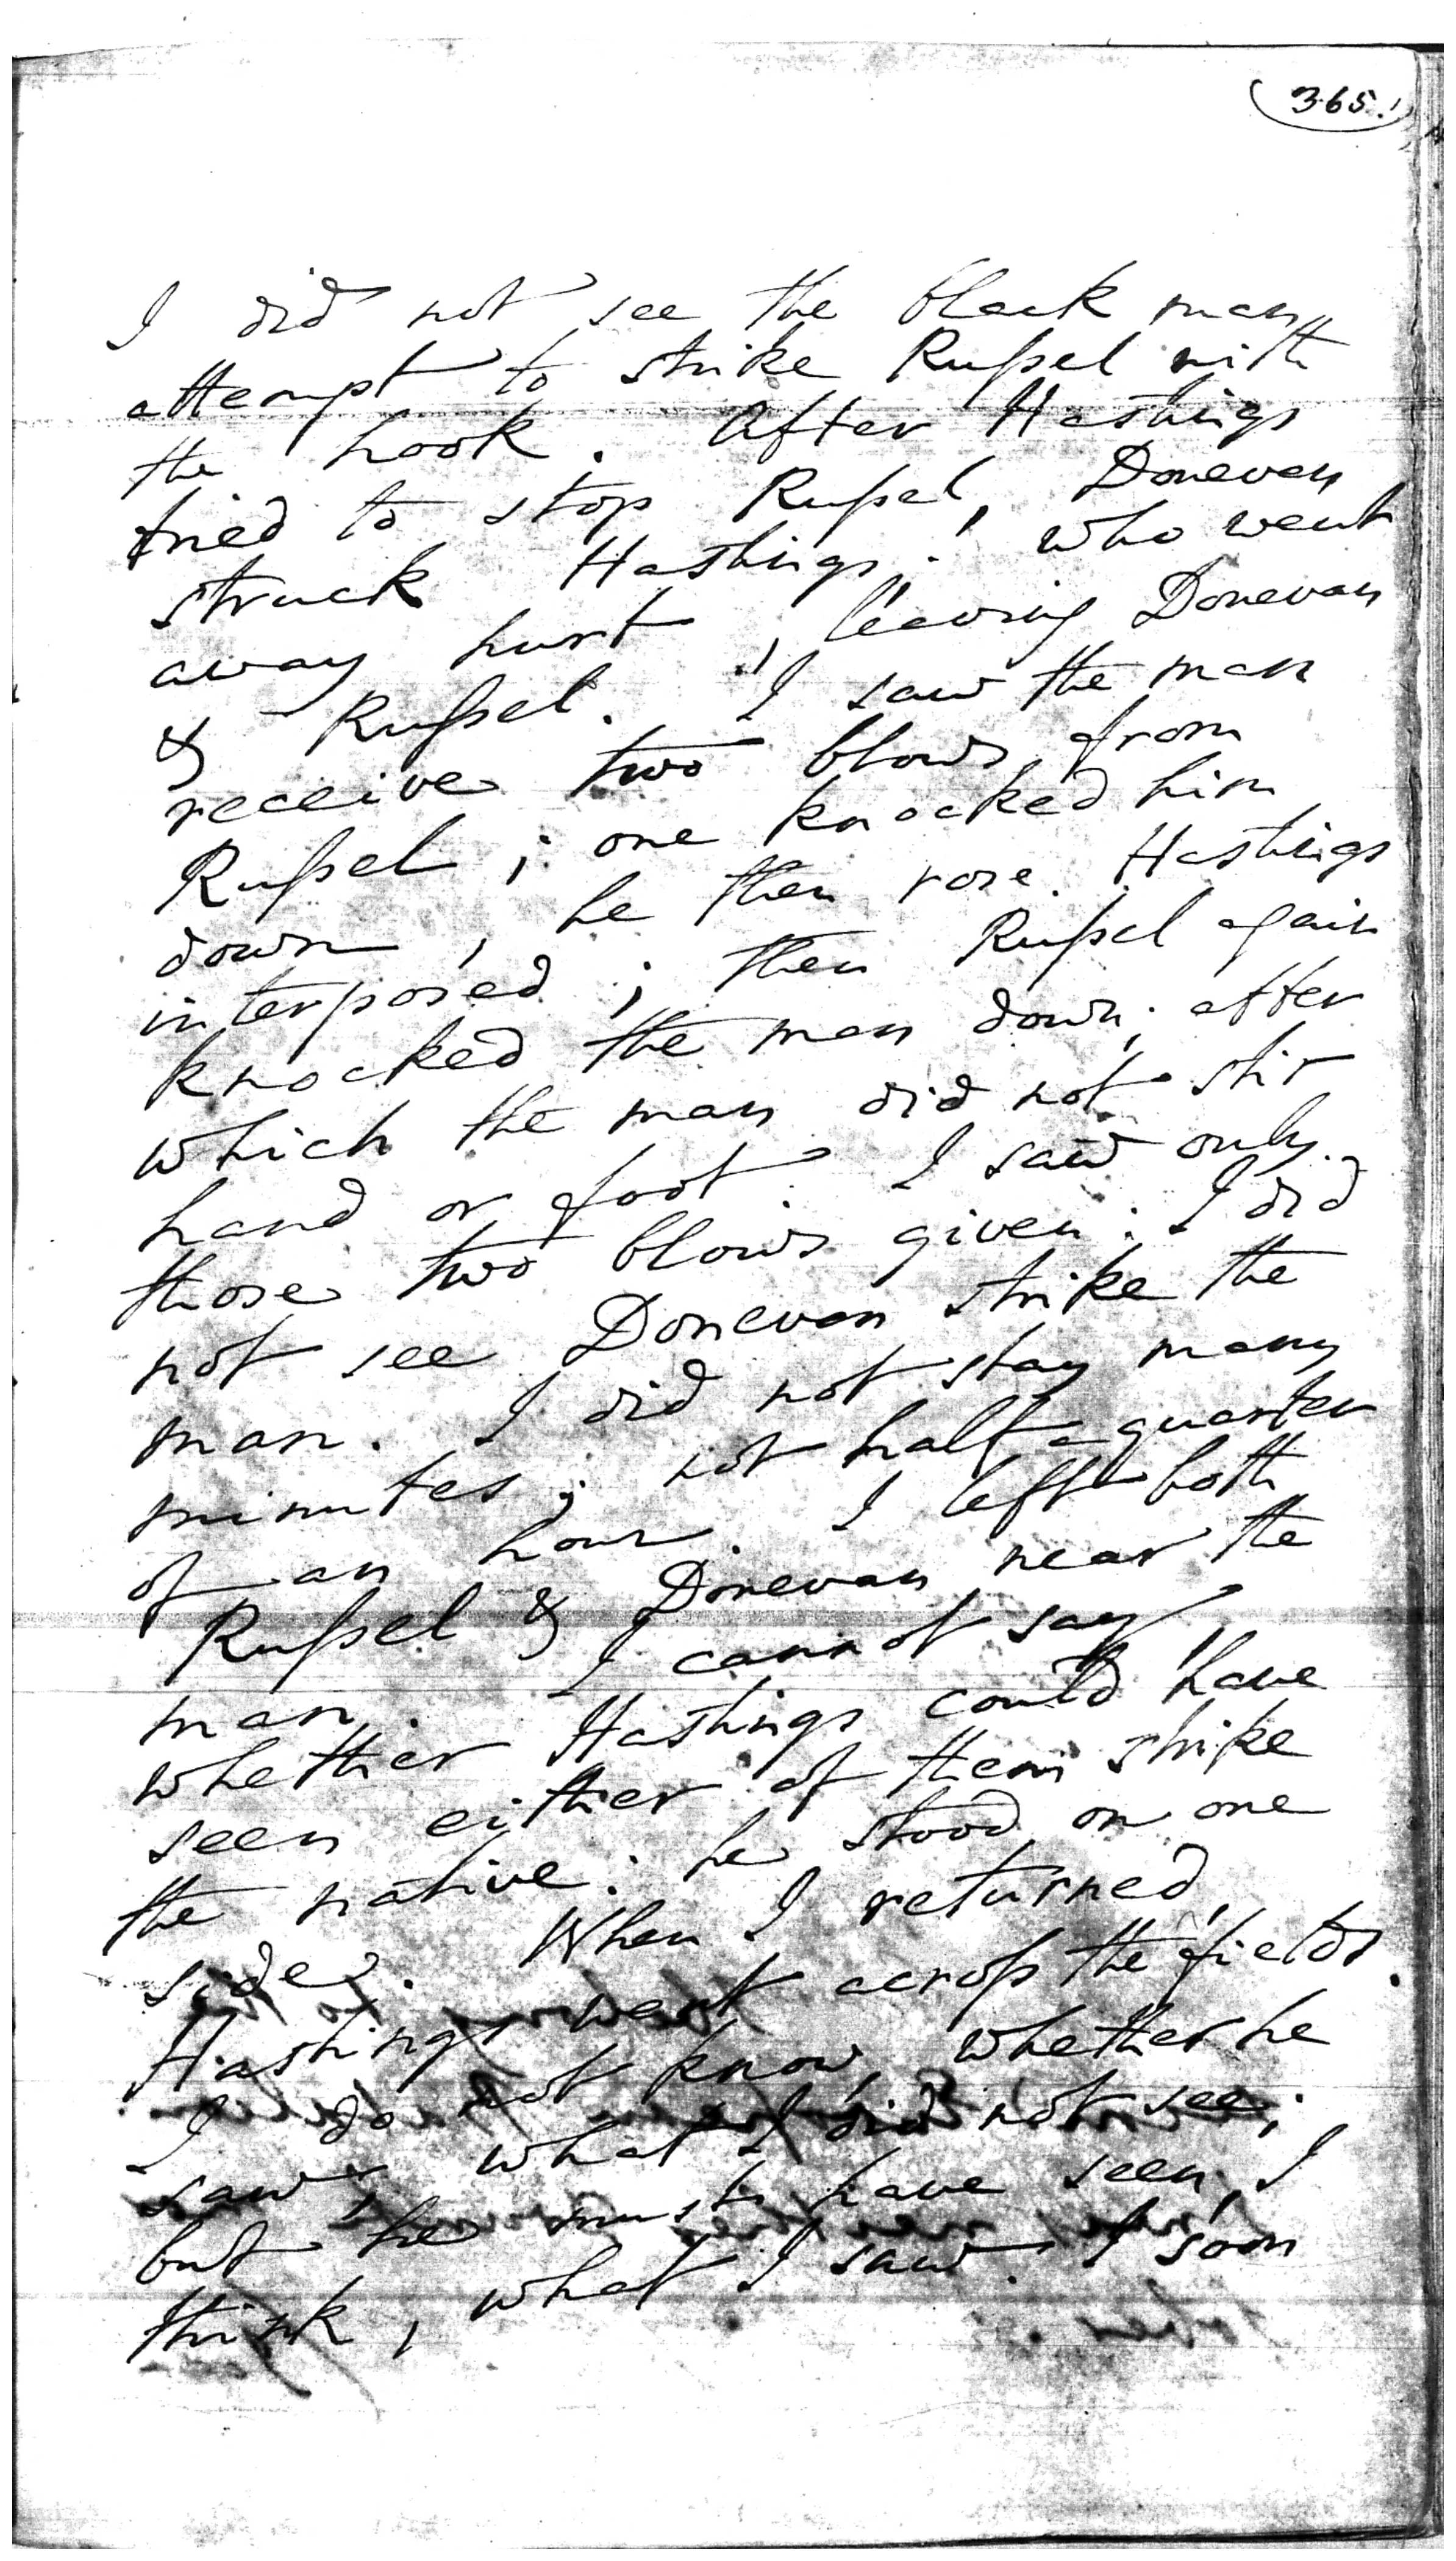 (365.)
I did not see the black man
attempt to strike Ruſsel with
the hook. After Hastings
tried to stop Ruſsel, Donevan
struck Hastings; who went
away hurt, leaving Donevan
& Ruſsel. I saw the man
receive two blows from
Ruſsel; one knocked him
down, he then rose. Hastings
interposed; then Ruſsel again
knocked the man down; after
which the man did not stir
hand or foot. I saw only
those two blows given: I did
not see Donevan strike the
man. I did not stay many
minutes; not half a quarter
of an hour. I left both
Ruſsel & Donevan near the
man. I cannot say
whether Hastings could have
seen either of them strike
the native: he stood on one
side. When I returned,
Hastings went acroſs the fields.
I do not know, whether he
saw, what I did not see;
but he must have seen, I
think, what I saw. I soon